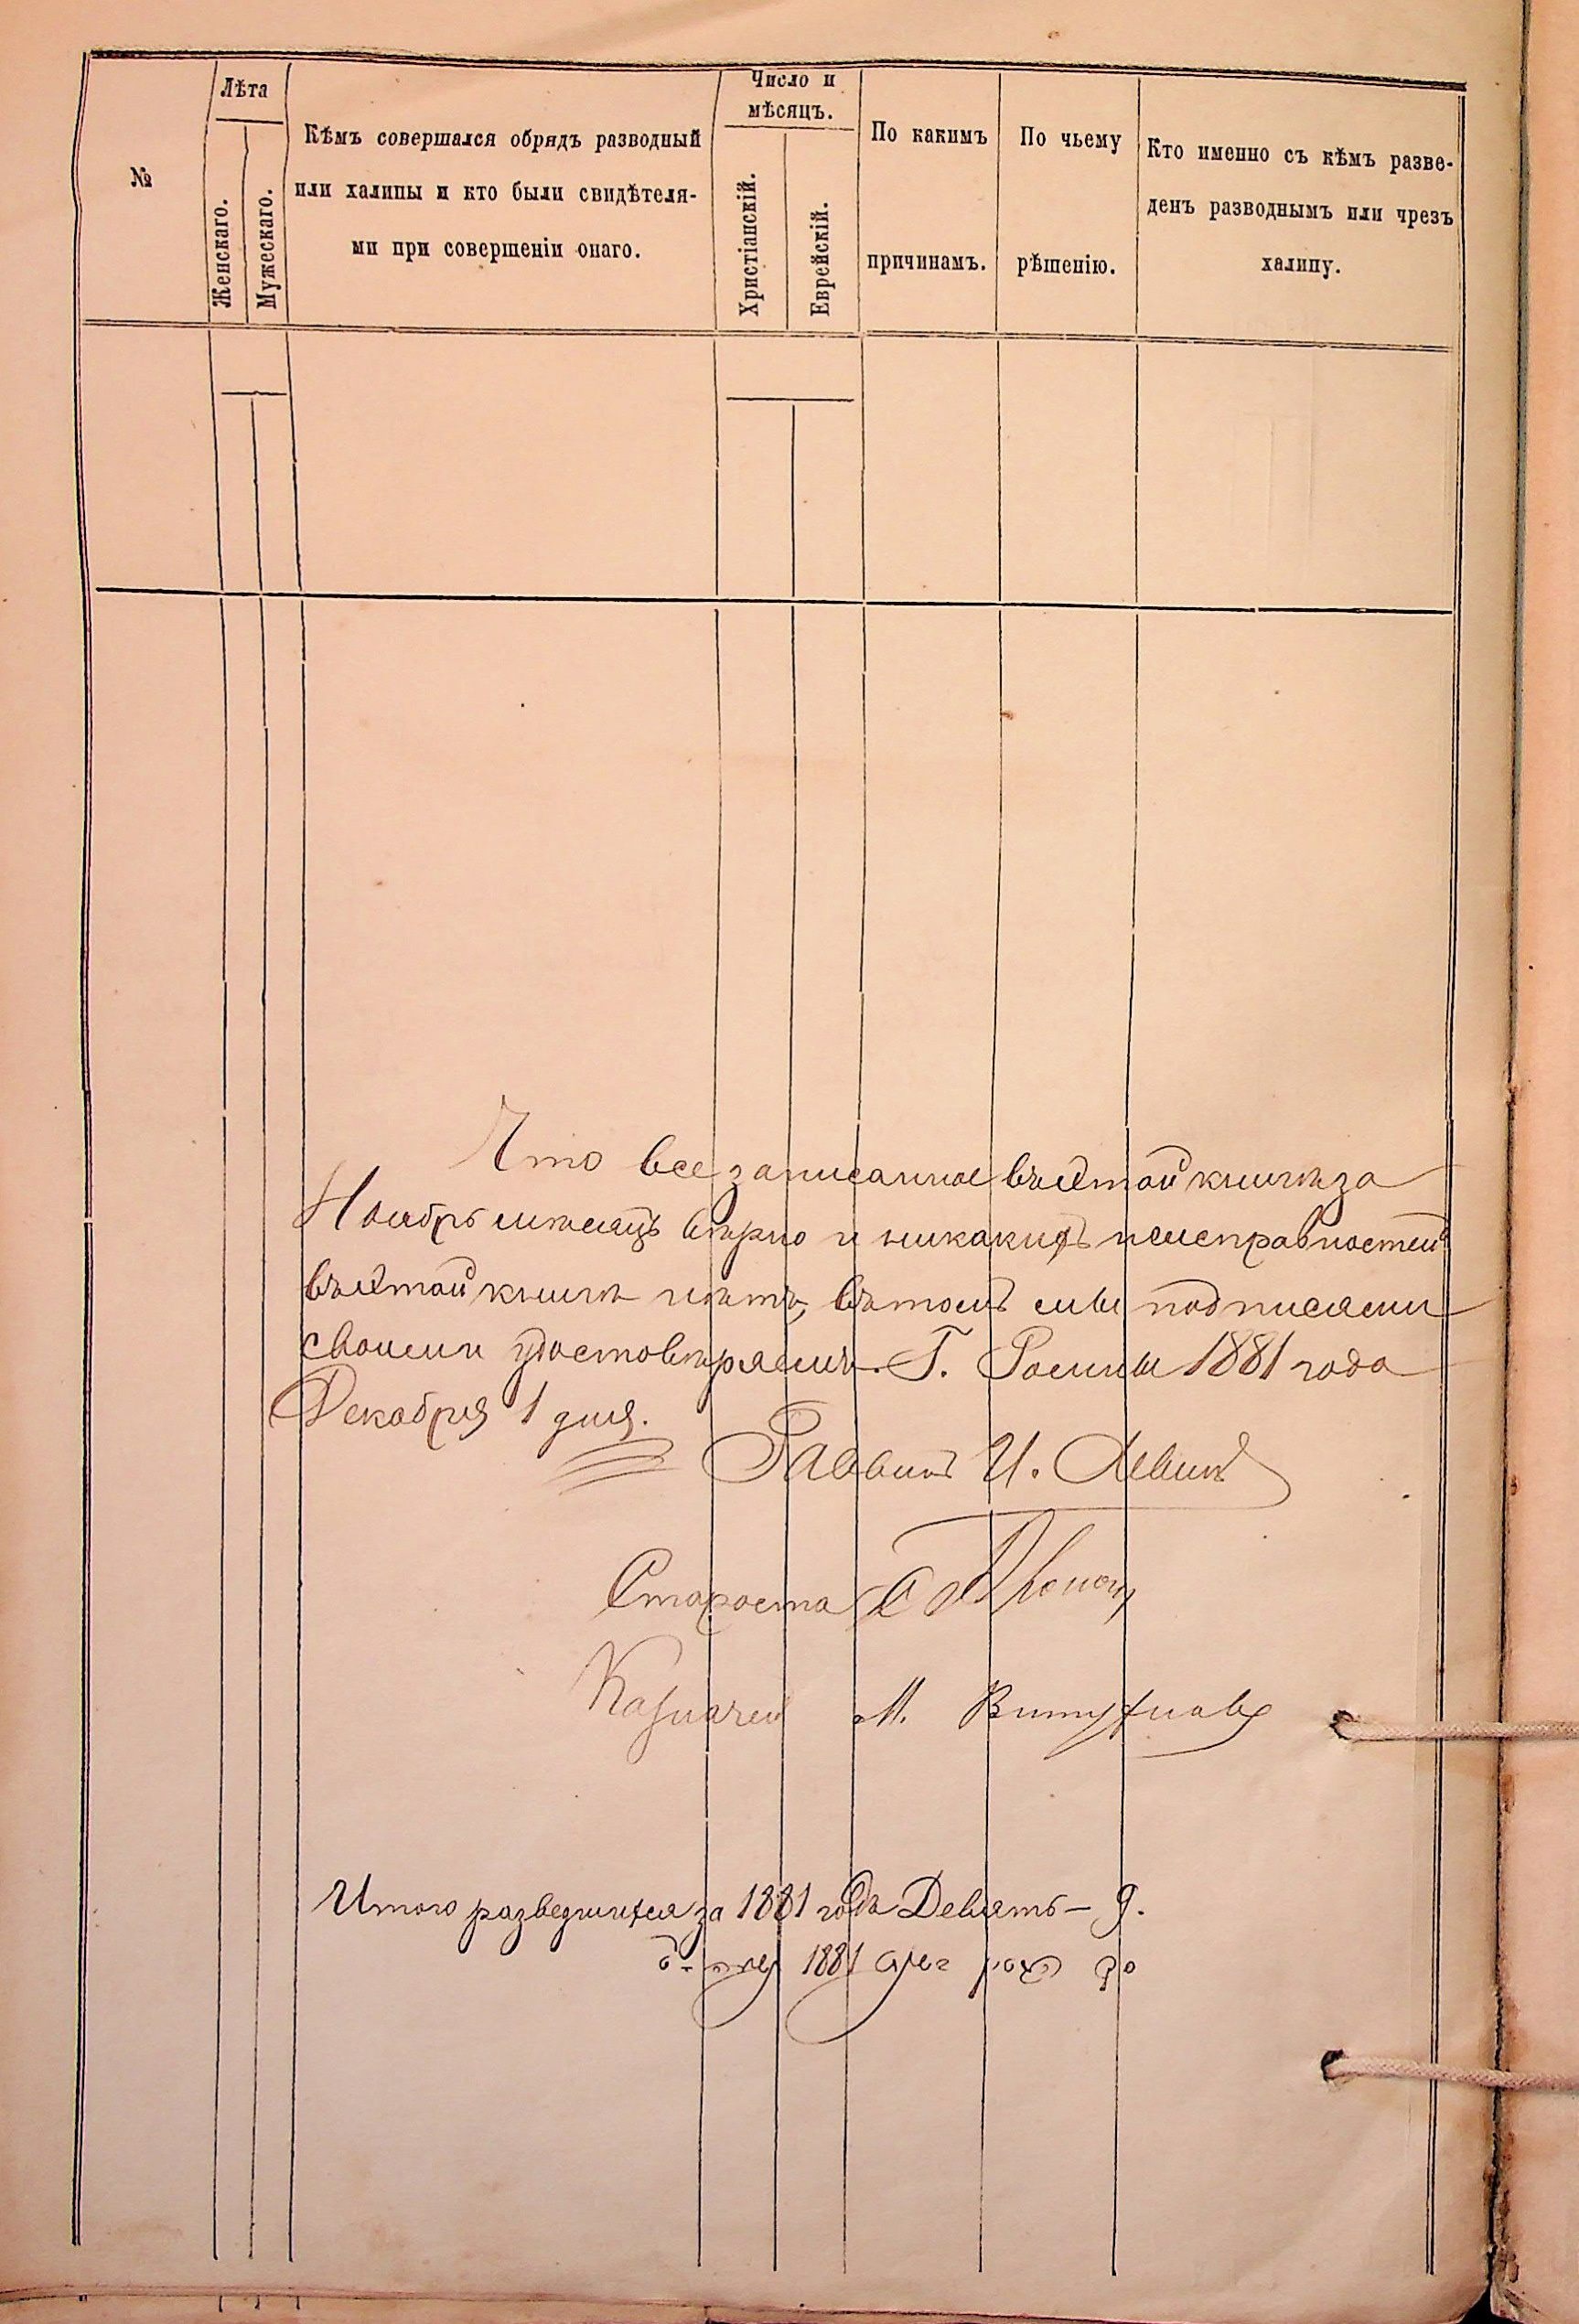 №
Лѣта
Женскаго.
Мужескаго.
Кѣмъ совершался обрядъ разводный
или халицы и кто были свидѣтеля-
ми при совершеніи онаго.
Число и
мѣсяцъ.
Христіанскій.
Еврейскій.
По какимъ
причинамъ.
По чьему
рѣшенію.
Кто именно съ кѣмъ разве-
денъ разводнымъ или чрезъ
халицу.
Что все записанное въ этой книгѣ за
Ноябрь мѣсяцъ вѣрно и никакихъ неисправностей
въ этой книгѣ нѣтъ, въ томъ мы подписями
своими удостовѣряемъ. Г. Ромны 1881 года
Декабря 1 дня.
Раввинъ И. Левинъ
Староста
Казначей М.
Итого разведшихся за 1881 годъ Девять – 9.
1881